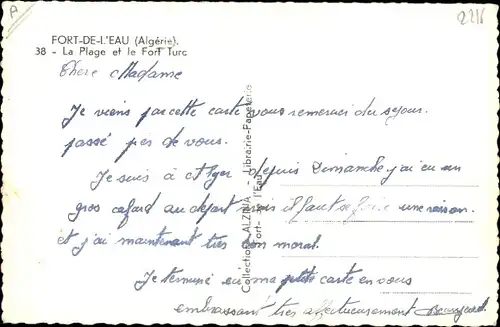 A
2216
FORT-DE-L'EAU (Algérie).
38 - La Plage et le Fort Turc
Chere Madame
Je viens par cette carte vous remercier du sejour.
passé pres de vous.
Je suis à Alger depuis Dimanche j'ai eu un
gros cafard au depart mais il faut se faire une raison.
et j'ai maintenant tres bon moral.
Je termine ma petite carte en vous
embrassant tres affectueusement
Collection ALZINA - Librairie-Papeterie
Fort-de-l'Eau